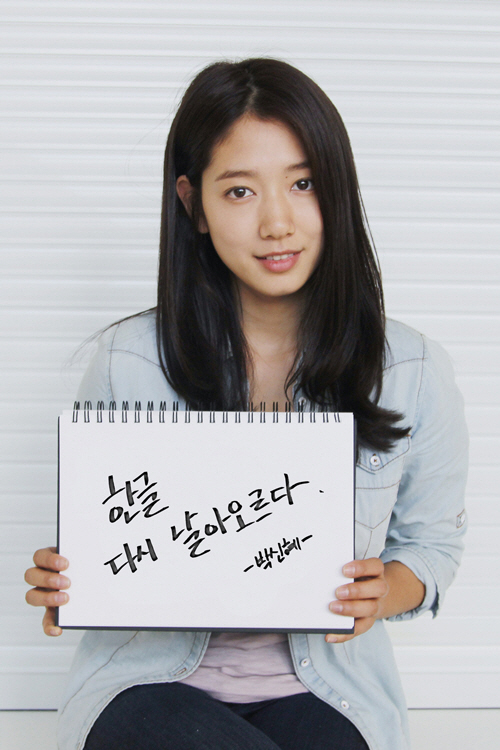 한글
다시 날아오르다.
-박신혜-